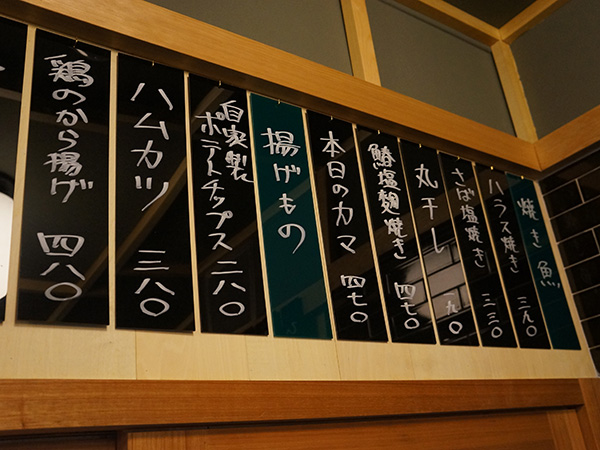 焼き魚
ハラス焼き 三九〇
さば塩焼き 三三〇
丸干し 一九〇
鰆塩麹焼き 四七〇
本日のカマ 四七〇
揚げもの
自家製
ポテトチップス 二八〇
ハムカツ 三八〇
鶏のから揚げ 四八〇